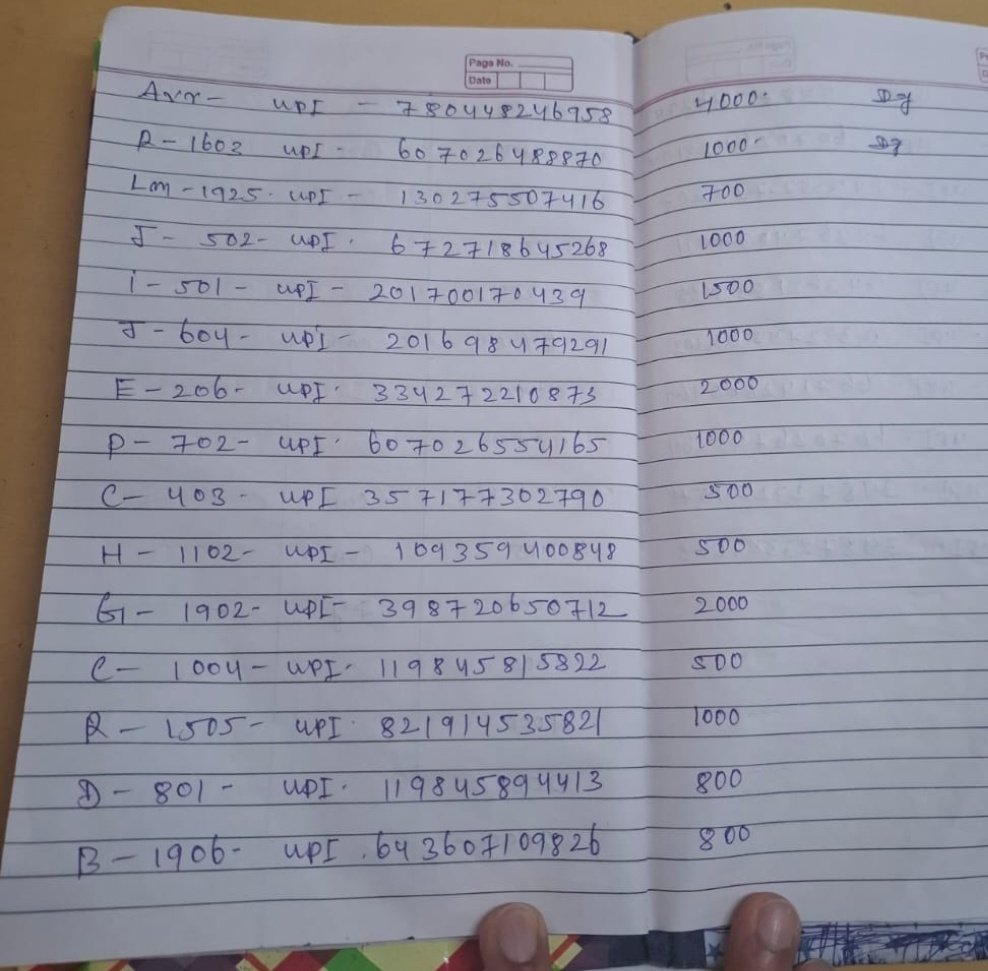 Page No.
Date
Avr - UPI - 780448246958 4000. Dg
R - 1603 UPI - 607026488870 1000 - Dg
Lm - 1925. UPI - 130275507416 700
J - 502 - UPI. 672718645268 1000
i - 501 - UPI - 201700170439 1500
J - 604 - UPI - 201698479291 1000
E - 206 - UPI. 334272210873 2000
P - 702 - UPI. 607026554165 1000
C - 403 - UPI 357177302790 500
H - 1102 - UPI - 109359400848 500
G - 1902 - UPI - 398720650712 2000
C - 1004 - UPI. 119845815822 500
R - 1505 - UPI. 821914535821 1000
D - 801 - UPI. 119845894413 800
B - 1906 - UPI. 643607109826 800